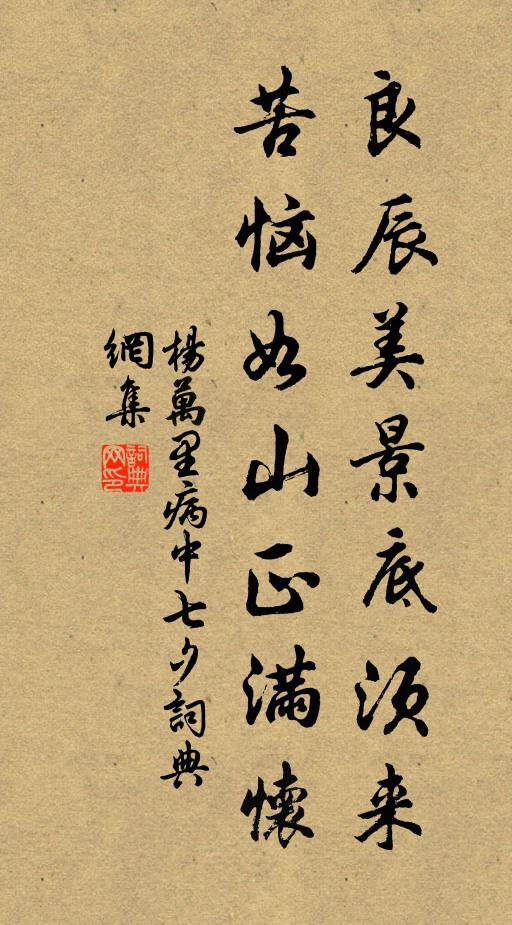 良辰美景底須来
苦惱如山正滿懷
楊萬里病中七夕詞典
網集
詞典
网印